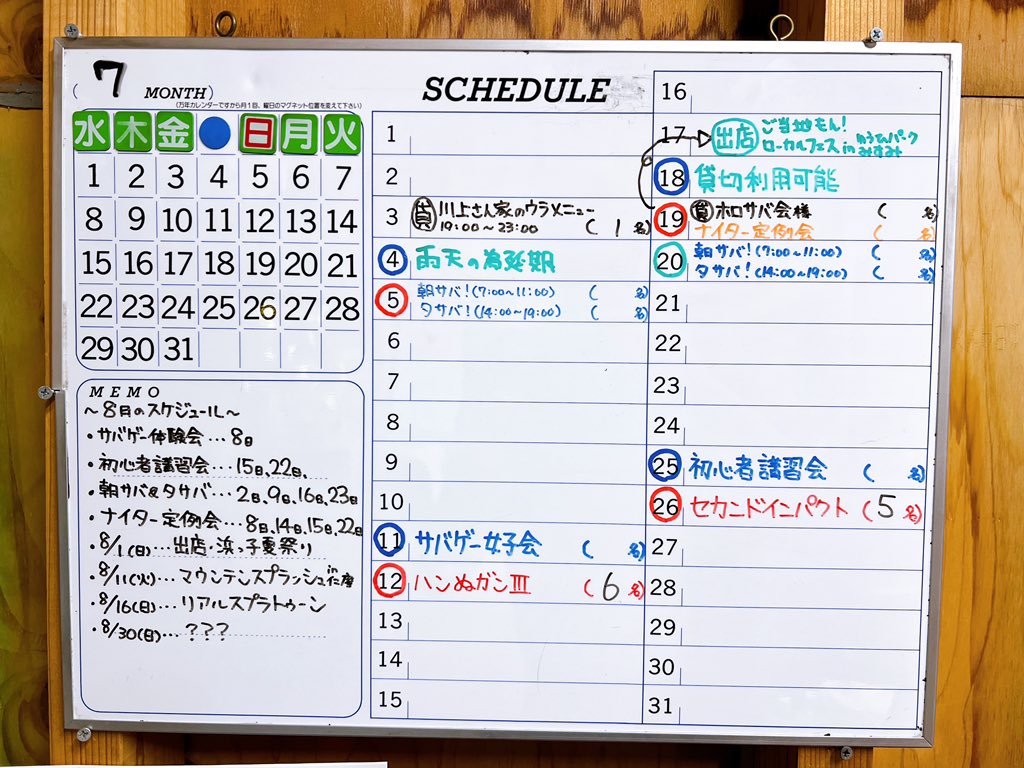 ( 7 MONTH)
(万年カレンダーですから月1回、曜日のマグネット位置を変えて下さい)
水 木 金 日 月 火
1 2 3 4 5 6 7
8 9 10 11 12 13 14
15 16 17 18 19 20 21
22 23 24 25 26 27 28
29 30 31
MEMO
～8月のスケジュール～
・サバゲー体験会…8日
・初心者講習会…15日、22日、
・朝サバ&夕サバ…2日、9日、16日、23日
・ナイター定例会…8日、14日、15日、22日
・8/1(日)…出店・浜っ子夏祭り
・8/11(火)…マウンテンスプラッシュin仁摩
・8/16(日)…リアルスプラトゥーン
・8/30(日)…???
SCHEDULE
1
2
3 貸 川上さん家のウラメニュー
19:00～23:00 ( 1 名)
4 雨天の為延期
5 朝サバ!(7:00～11:00) ( 名)
夕サバ!(14:00～19:00) ( 名)
6
7
8
9
10
11 サバゲー女子会 ( 名)
12 ハンぬガンIII ( 6 名)
13
14
15
16
17 出店 ご当地もん!
ローカルフェス in
みすみ
18 貸切利用可能
19 貸 ホロサバ会様 ( 名)
ナイター定例会 ( 名)
20 朝サバ!(7:00～11:00) ( 名)
夕サバ!(14:00～19:00) ( 名)
21
22
23
24
25 初心者講習会 ( 名)
26 セカンドインパクト ( 5 名)
27
28
29
30
31